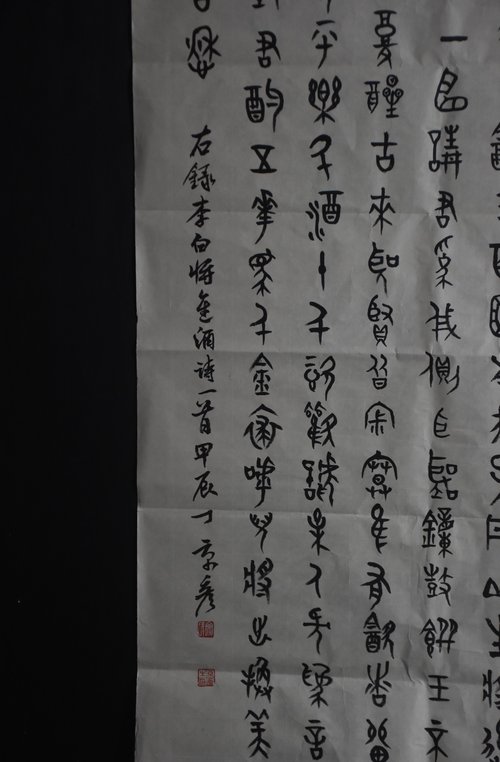 丹丘生將
一曲請君為我側耳聽鐘鼓饌玉不
復醒古來聖賢皆寂寞惟有飲者留
平樂斗酒十千恣歡謔主人何為言
君酌五花馬千金裘呼兒將出換美
古愁
右錄李白將進酒詩一首甲辰丁